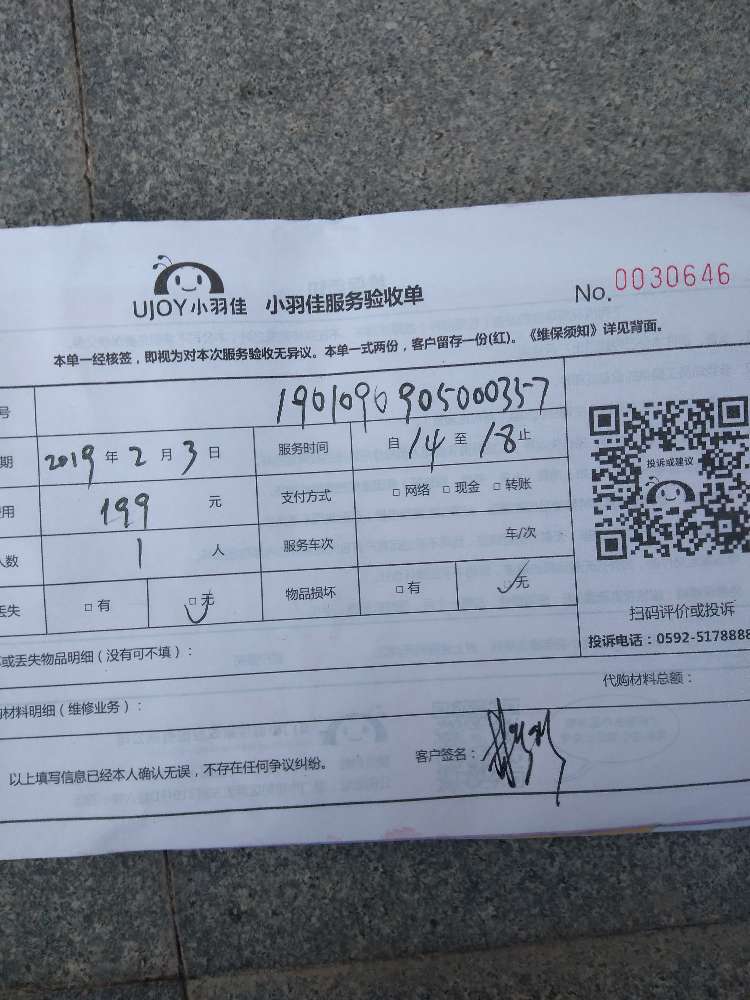 UJOY小羽佳 小羽佳服务验收单 No. 0030646
本单一经核签，即视为对本次服务验收无异议。本单一式两份，客户留存一份(红)。《维保须知》详见背面。
号 1901090905000357
期 2019 年 2 月 3 日 服务时间 自 14 至 18 止
用 199 元 支付方式 □ 网络 □ 现金 □ 转账
人数 1 人 服务车次 车/次
丢失 □ 有 □ 无 物品损坏 □ 有 无
投诉或建议
扫码评价或投诉
投诉电话：0592-5178888
或丢失物品明细（没有可不填）：
材料明细（维修业务）： 代购材料总额：
以上填写信息已经本人确认无误，不存在任何争议纠纷。 客户签名：